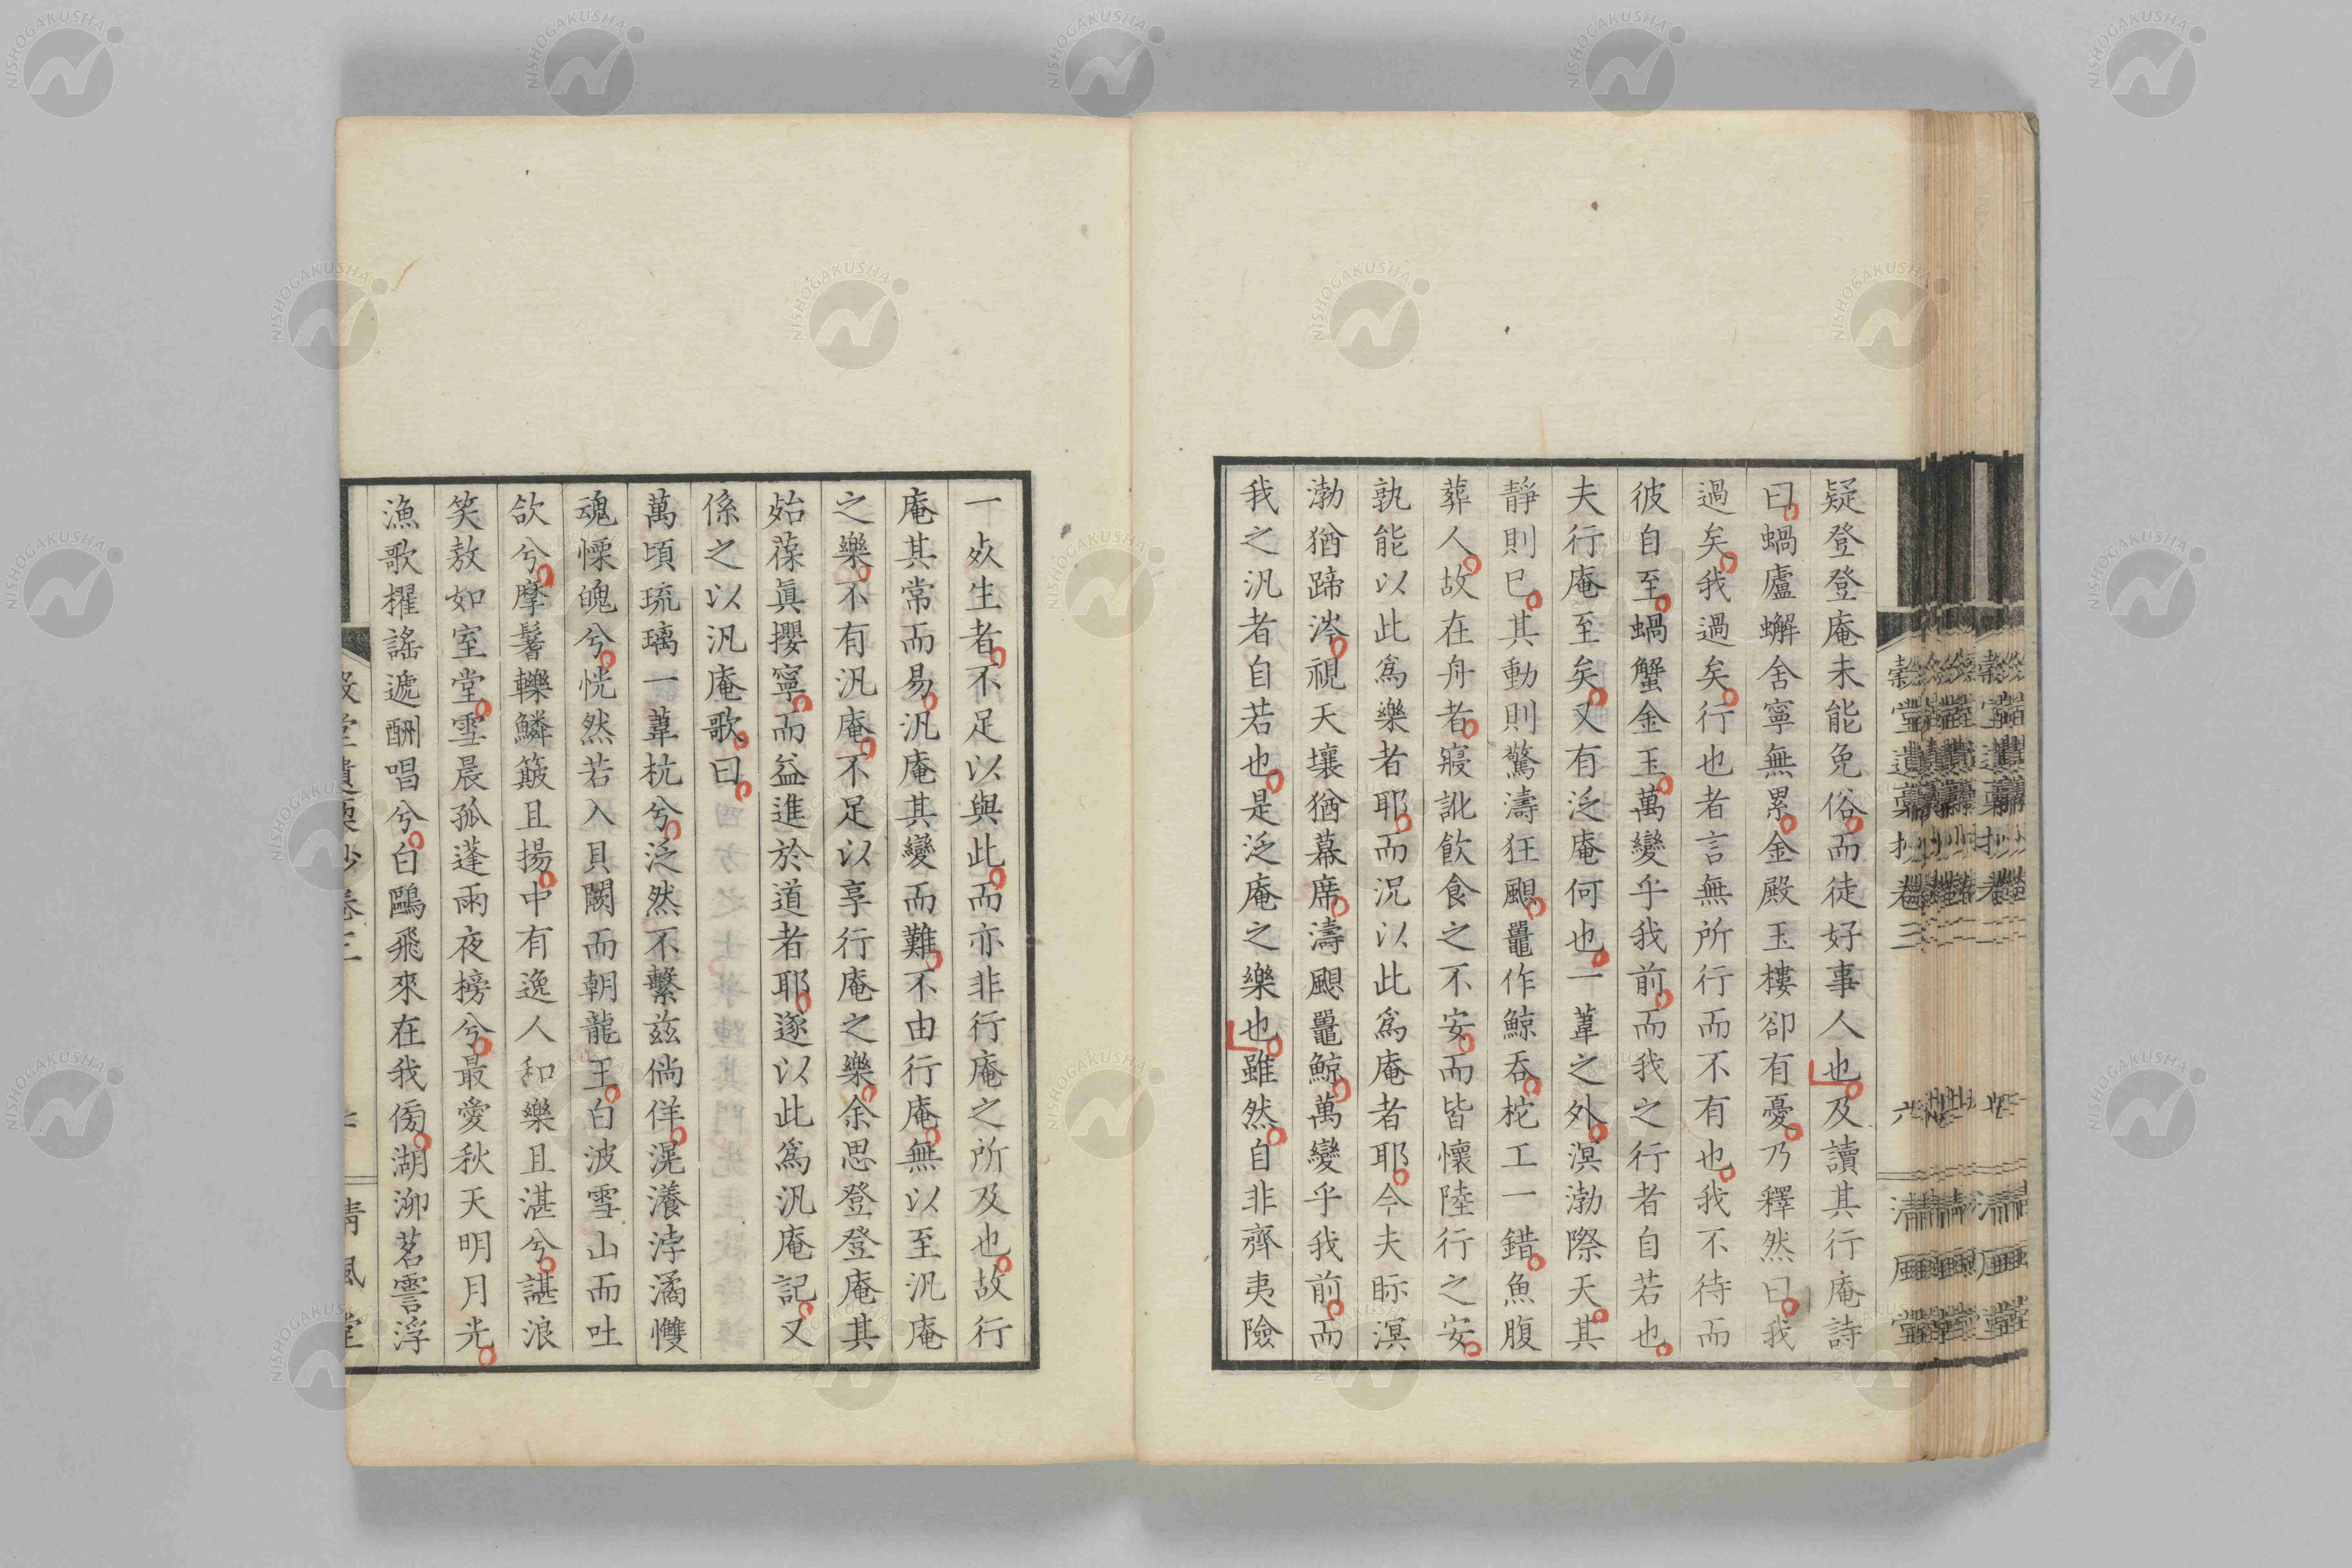 疑登登庵未能免俗而徒好事人也及讀其行庵詩
曰蝸廬蠏舍寧無累金殿玉樓卻有憂乃釋然曰我
過矣我過矣行也者言無所行而不有也我不待而
彼自至蝸蟹金玉萬變乎我前而我之行者自若也
夫行庵至矣又有泛庵何也一葦之外溟渤際天其
靜則已其動則驚濤狂颶鼉作鯨吞柁工一錯魚腹
葬人故在舟者寢訛飮食之不安而皆懷陸行之安
孰能以此爲樂者耶而況以此爲庵者耶今夫眎溟
渤猶蹄涔視天壤猶幕席濤颶鼉鯨萬變乎我前而
我之汎者自若也是泛庵之樂也雖然自非齊夷險
一㱁生者不足以與此而亦非行庵之所及也故行
庵其常而易汎庵其變而難不由行庵無以至汎庵
之樂不有汎庵不足以享行庵之樂余思登登庵其
始葆眞攖寧而益進於道者耶遂以此爲汎庵記又
係之以汎庵歌曰
萬頃琉璃一葦杭兮泛然不繫兹倘佯滉瀁浡潏戄
魂慄魄兮恍然若入貝闕而朝龍王白波雪山而吐
欱兮摩鬐轢鱗簸且揚中有逸人和樂且湛兮諶浪
笑敖如室堂雪晨孤蓬雨夜榜兮最愛秋天明月光
漁歌櫂謠遞酬唱兮白鷗飛來在我傍湖泖茗霅浮
穀堂遺稾抄卷三
六
清風堂